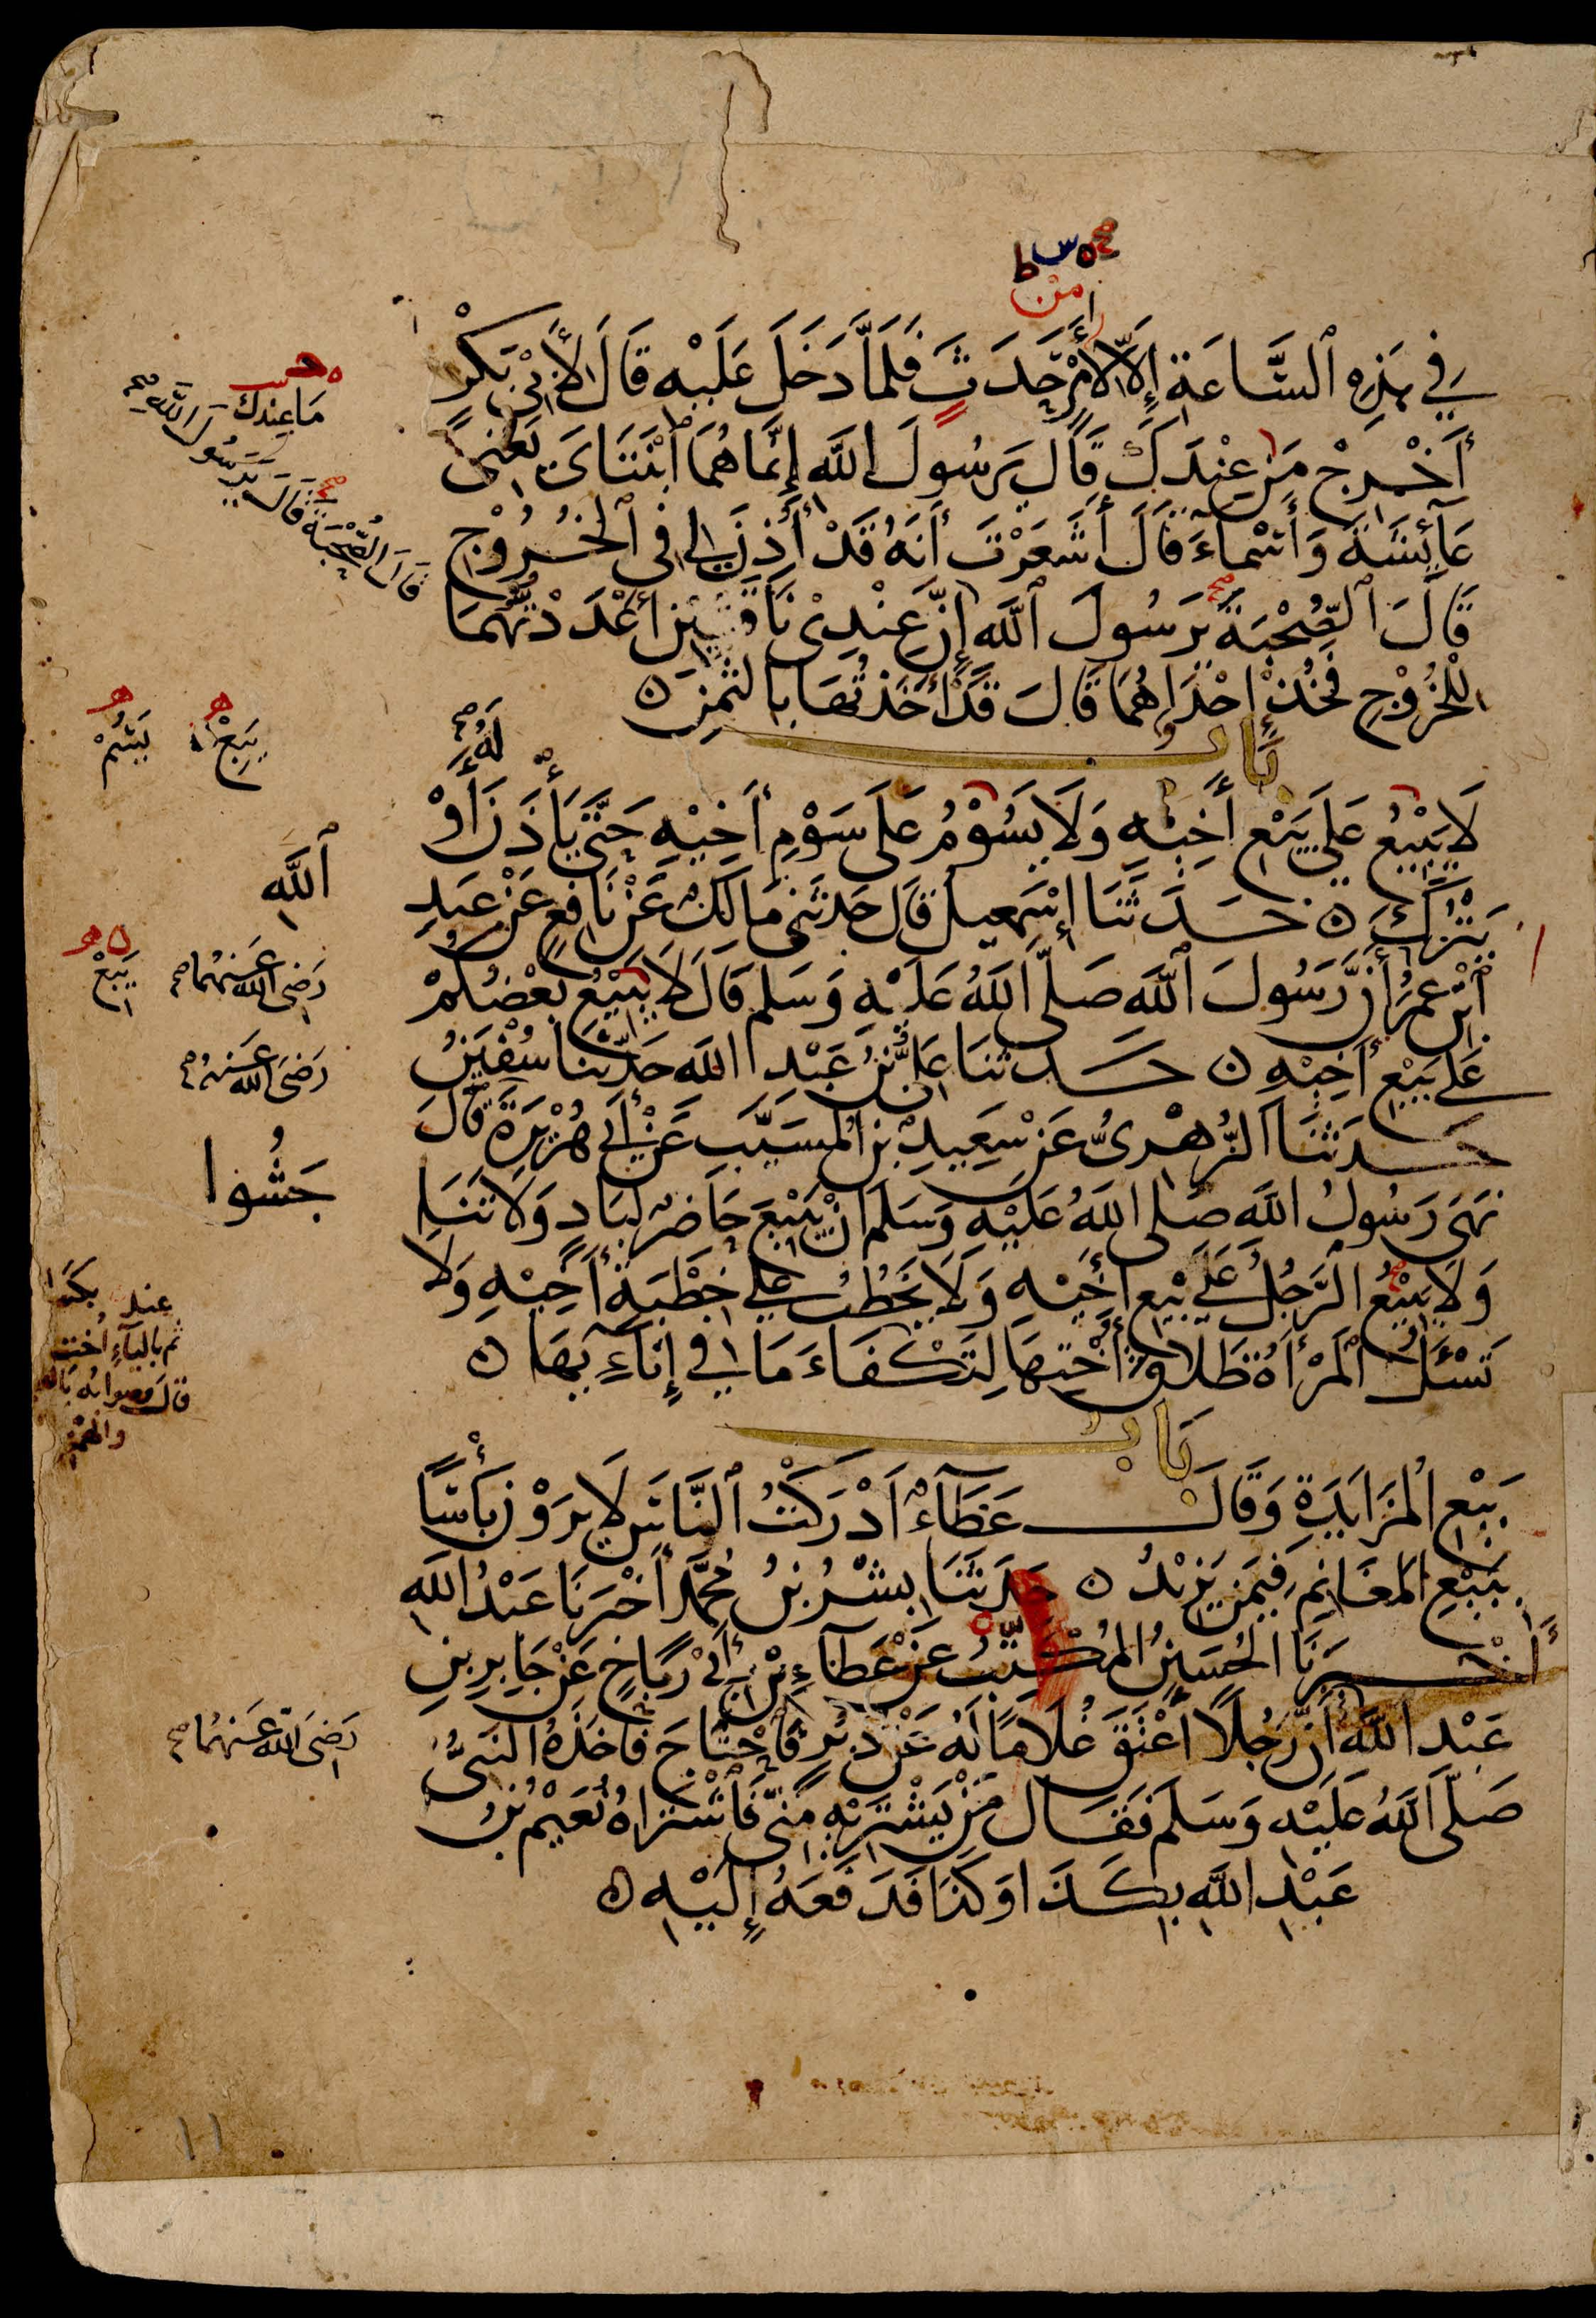 ححـ ه س ط
من
في هٰذِهِ ٱلسَّاعَةِ إِلَّا لِأَمْرٍ حَدَثَ فَلَمَّا دَخَلَ عَلَيْهِ قَالَ لِأَبِي بَكْرٍ
أَخْرِجْ مَنْ عِنْدَكَ قَالَ يَرَسُولَ اللَّهِ إِنَّمَا هُمَا ٱبْنَتَايَ يَعْنِي
عَائِشَةَ وَأَسْمَاءَ قَالَ أَشَعَرْتَ أَنَّهُ قَدْ أُذِنَ لِي فِي ٱلْخُرُوْجِ
قَالَ ٱلصُّحْبَةَ يَرَسُولَ ٱللَّهِ إِنَّ عِنْدِيْ نَاقَتَيْنِ أَعْدَدْتُهُمَا
لِلْخُرُوْجِ فَخُذْ إِحْدَاهُمَا قَالَ قَدْ أَخَذْتُهَا بِالثَّمَنِ ن
بَابٌ
لَا يَبِيْعُ عَلَى بَيْعِ أَخِيْهِ وَلَا يَسُوْمُ عَلَى سَوْمِ أَخِيْهِ حَتَّى يَأْذَنَ أَوْ
يَتْرُكَ ن حَدَّثَنَا إِسْمٰعِيلُ قَالَ حَدَّثَنِي مَالِكٌ عَنْ نَافِعٍ عَنْ عَبْدِ
ٱبْنِ عُمَرَ أَنَّ رَسُولَ ٱللَّهِ صَلَّى اللَّهُ عَلَيْهِ وَسَلَّمَ قَالَ لَا يَبِيْعُ بَعْضُكُمْ
عَلَى بَيْعِ أَخِيْهِ ن حَدَّثَنَا عَلِيُّ بْنُ عَبْدِ اللَّهِ حَدَّثَنَا سُفْيٰنُ
حَدَّثَنَا الزُّهْرِيُّ عَنْ سَعِيدِ بْنِ الْمُسَيَّبِ عَنْ أَبِي هُرَيْرَةَ قَالَ
نَهَى رَسُولُ اللَّهِ صَلَّى اللَّهُ عَلَيْهِ وَسَلَّمَ أَنْ يَبِيْعَ حَاضِرٌ لِبَادٍ وَلَا تَنَا
وَلَا يَبِيْعُ الرَّجُلُ عَلَى بَيْعِ أَخِيْهِ وَلَا يَخْطُبُ عَلَى خِطْبَةِ أَخِيْهِ وَلَا
تَسْئَلُ الْمَرْأَةُ طَلَاقَ أُخْتِهَا لِتَكْفَاءَ مَا فِي إِنَاءِيهَا ن
بَابُ
بَيْعِ الْمُزَايَدَةِ وَقَالَ عَطَاءٌ أَدْرَكْتُ ٱلنَّاسَ لَا يَرَوْنَ بَأْسًا
بِبَيْعِ الْمَغَانِمِ فِيمَنْ يَزِيْدُ ن حَدَّثَنَا بِشْرُ بْنُ مُحَمَّدٍ أَخْبَرَنَا عَبْدُ اللَّهِ
أَخْبَرَنَا الْحُسَيْنُ الْمُكَتِّبُ عَنْ عَطَاءِ بْنِ أَبِيْ رَبَاحٍ عَنْ جَابِرِ بْنِ
عَبْدِ اللَّهِ أَنَّ رَجُلًا أَعْتَقَ غُلَامًا لَهُ عَنْ دُبُرٍ فَاحْتَاجَ فَأَخَذَهُ النَّبِيُّ
صَلَّى اللَّهُ عَلَيْهِ وَسَلَّمَ فَقَالَ مَنْ يَشْتَرِيْهِ مِنِّي فَاشْتَرَاهُ نُعَيْمُ بْنُ
عَبْدِ اللَّهِ بِكَذَا وَكَذَا فَدَفَعَهُ إِلَيْهِ ن
مَا عِنْدَكَ
قَالَ الصُّحْبَةَ قَالَ يَرَسُولَ اللَّهِ صح
لَهُ صح
يَبِعْ
يَسُمْ
ٱللَّهِ
رَضِيَ اللَّهُ عَنْهُمَا صح
يَبِعْ
رَضِيَ اللَّهُ عَنْهُ صح
جَشُوا
عند
ثم بالياء أخت
قال صوابه
والهمز
رَضِيَ اللَّهُ عَنْهُمَا صح
١١